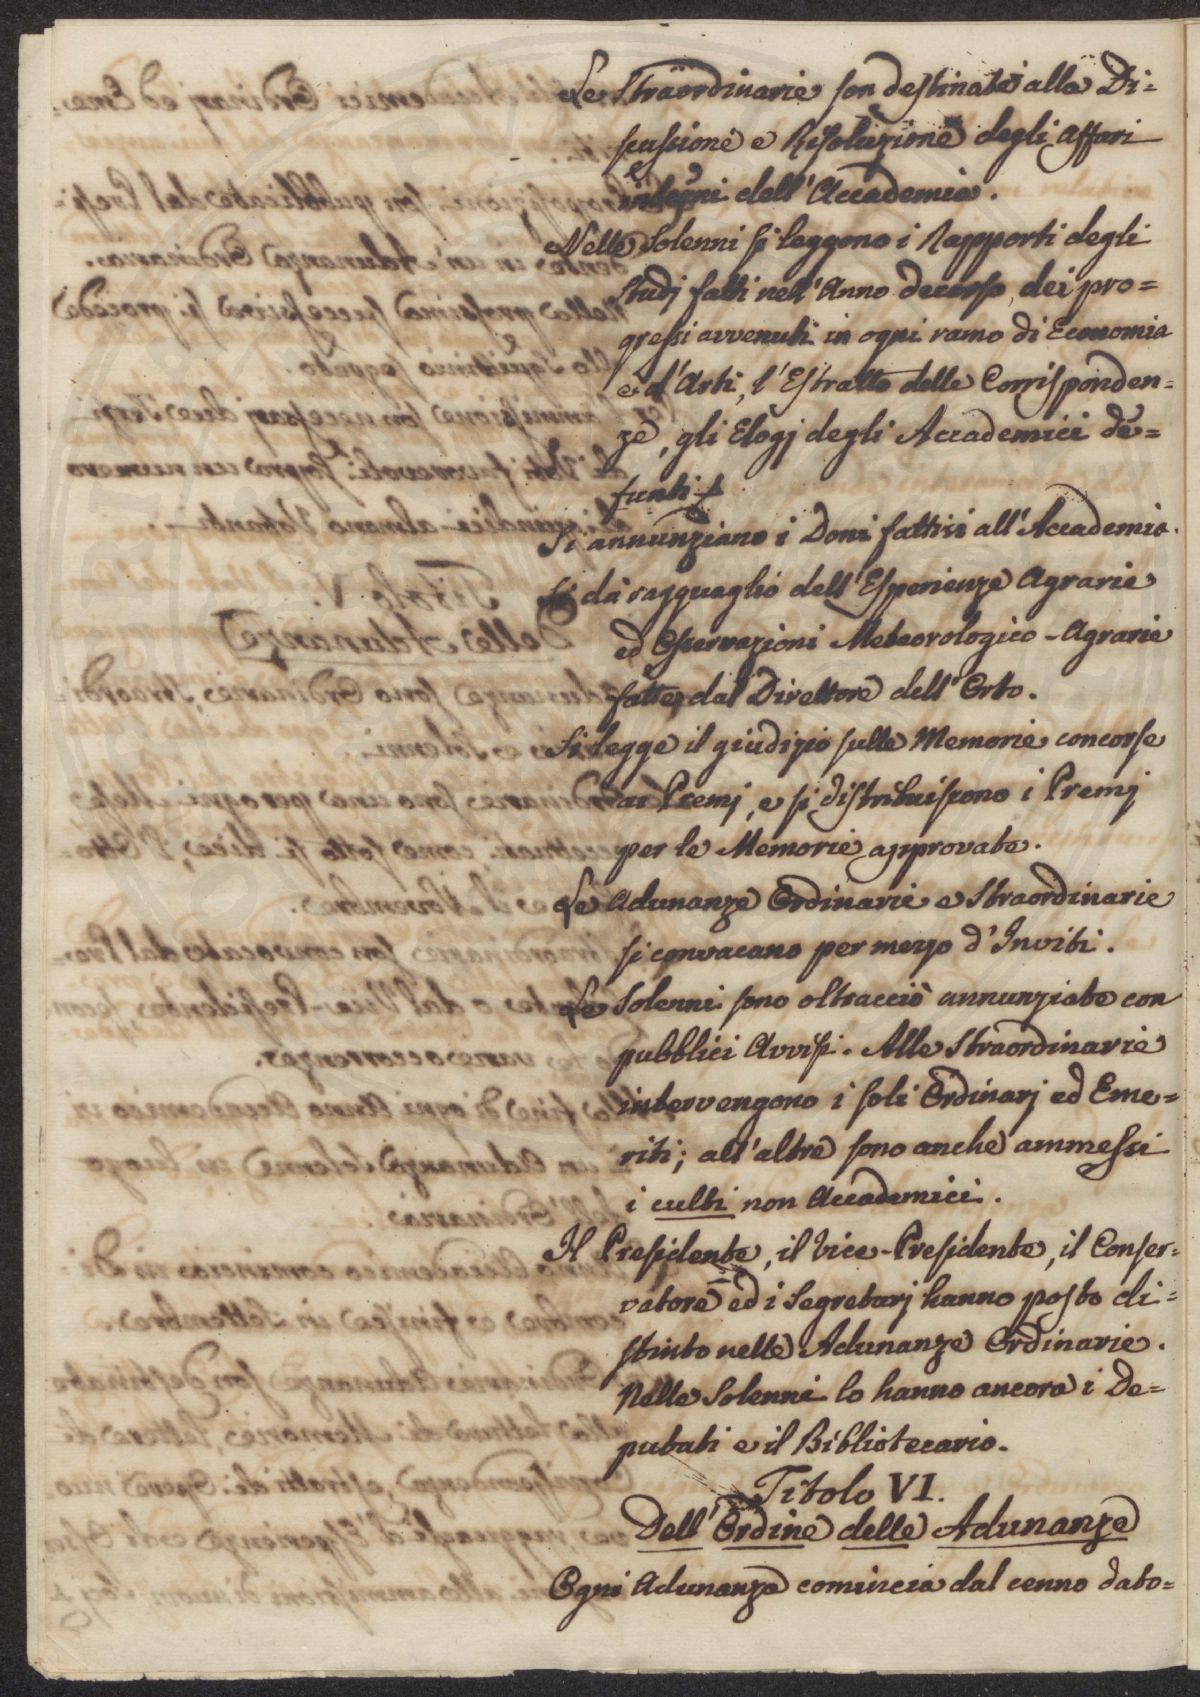 Le Straordinarie son destinate alla Di=
scussione e Risoluzione degli affari
interni dell'Accademia.
Nelle Solenni si leggono i Rapporti degli
studj fatti nell'Anno decorso, dei pro=
gressi avvenuti in ogni ramo di Economia
e d'Arti, l'Estratto delle Corrisponden=
ze, gli Elogj degli Accademici de=
funti
Si annunziano i Doni fattisi all'Accademia.
Si dà ragguaglio dell'Esperienze Agrarie
ed Osservazioni Meteorologico-Agrarie
fatte dal Direttore dell'Orto.
Si legge il giudizio sulle Memorie concorse
ai Premj, e si distribuiscono i Premj
per le Memorie approvate.
Le Adunanze Ordinarie e Straordinarie
si convocano per mezzo d'Inviti.
Le Solenni sono oltracciò annunziate con
pubblici Avvisi. Alle Straordinarie
intervengono i soli Ordinarj ed Eme=
riti; all'altre sono anche ammessi
i culti non Accademici.
Il Presidente, il Vice-Presidente, il Conser=
vatore ed i Segretarj hanno posto di=
stinto nelle Adunanze Ordinarie.
Nelle Solenni lo hanno ancora i De=
putati e il Bibliotecario.
Titolo VI.
Dell'Ordine delle Adunanze
Ogni Adunanza comincia dal cenno dato=